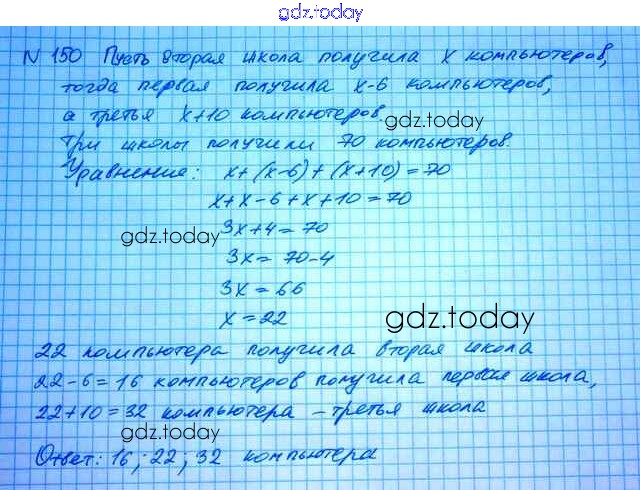 gdz.today
N 150 Пусть вторая школа получила x компьютеров,
тогда первая получила x-6 компьютеров,
а третья x+10 компьютеров.
gdz.today
Три школы получили 70 компьютеров.
Уравнение: x+(x-6)+(x+10)=70
x+x-6+x+10=70
gdz.today
3x+4=70
3x= 70-4
3x=66
x=22
gdz.today
22 компьютера получила вторая школа
22-6=16 компьютеров получила первая школа,
22+10=32 компьютера - третья школа
gdz.today
Ответ: 16; 22; 32 компьютера